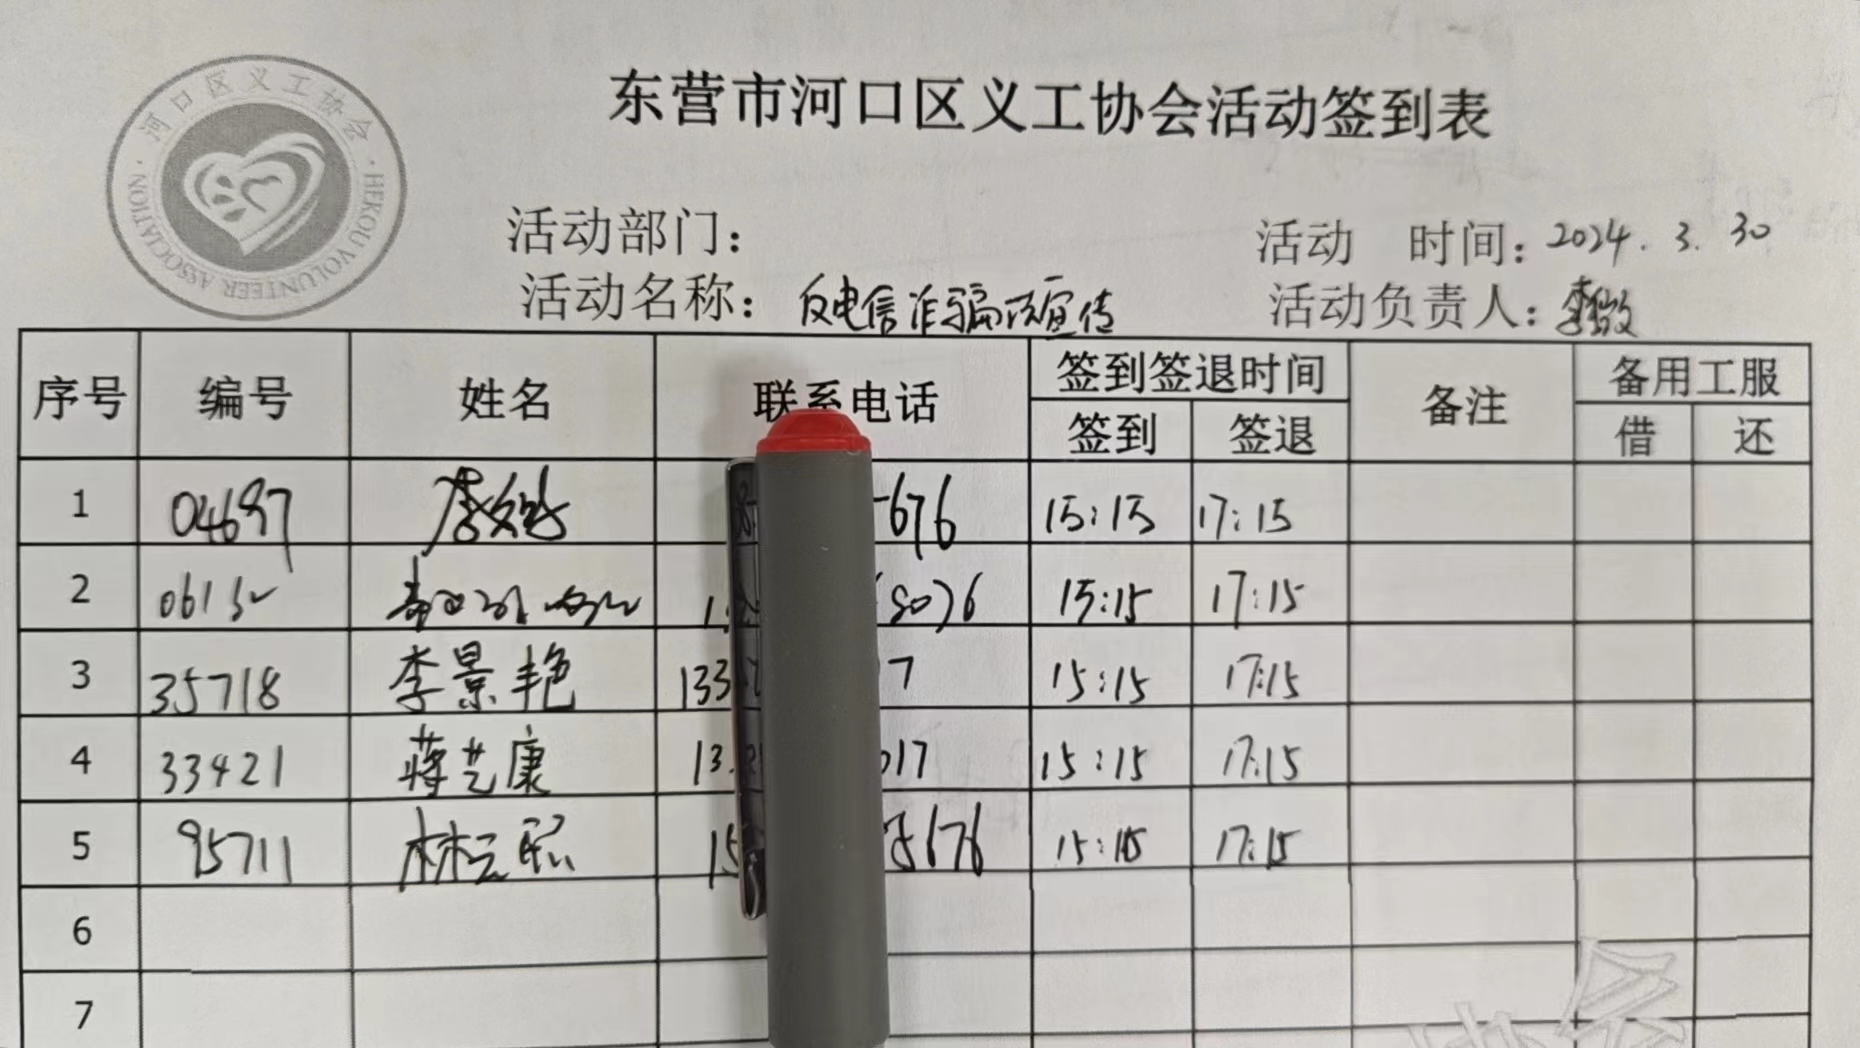 河口区义工协会
HEKOU VOLUNTEER ASSOCIATION
东营市河口区义工协会活动签到表
活动部门：
活动 时间：2024.3.30
活动名称：反电信诈骗宣传
活动负责人：李
序号 编号 姓名 联系电话 签到签退时间 备注 备用工服
签到 签退 借 还
1 04697 李 676 15:15 17:15
2 0613 15:15 17:15
3 35718 李景艳 133 7 15:15 17:15
4 33421 蒋艺康 13 017 15:15 17:15
5 95711 林云熙 15 5676 15:15 17:15
6
7